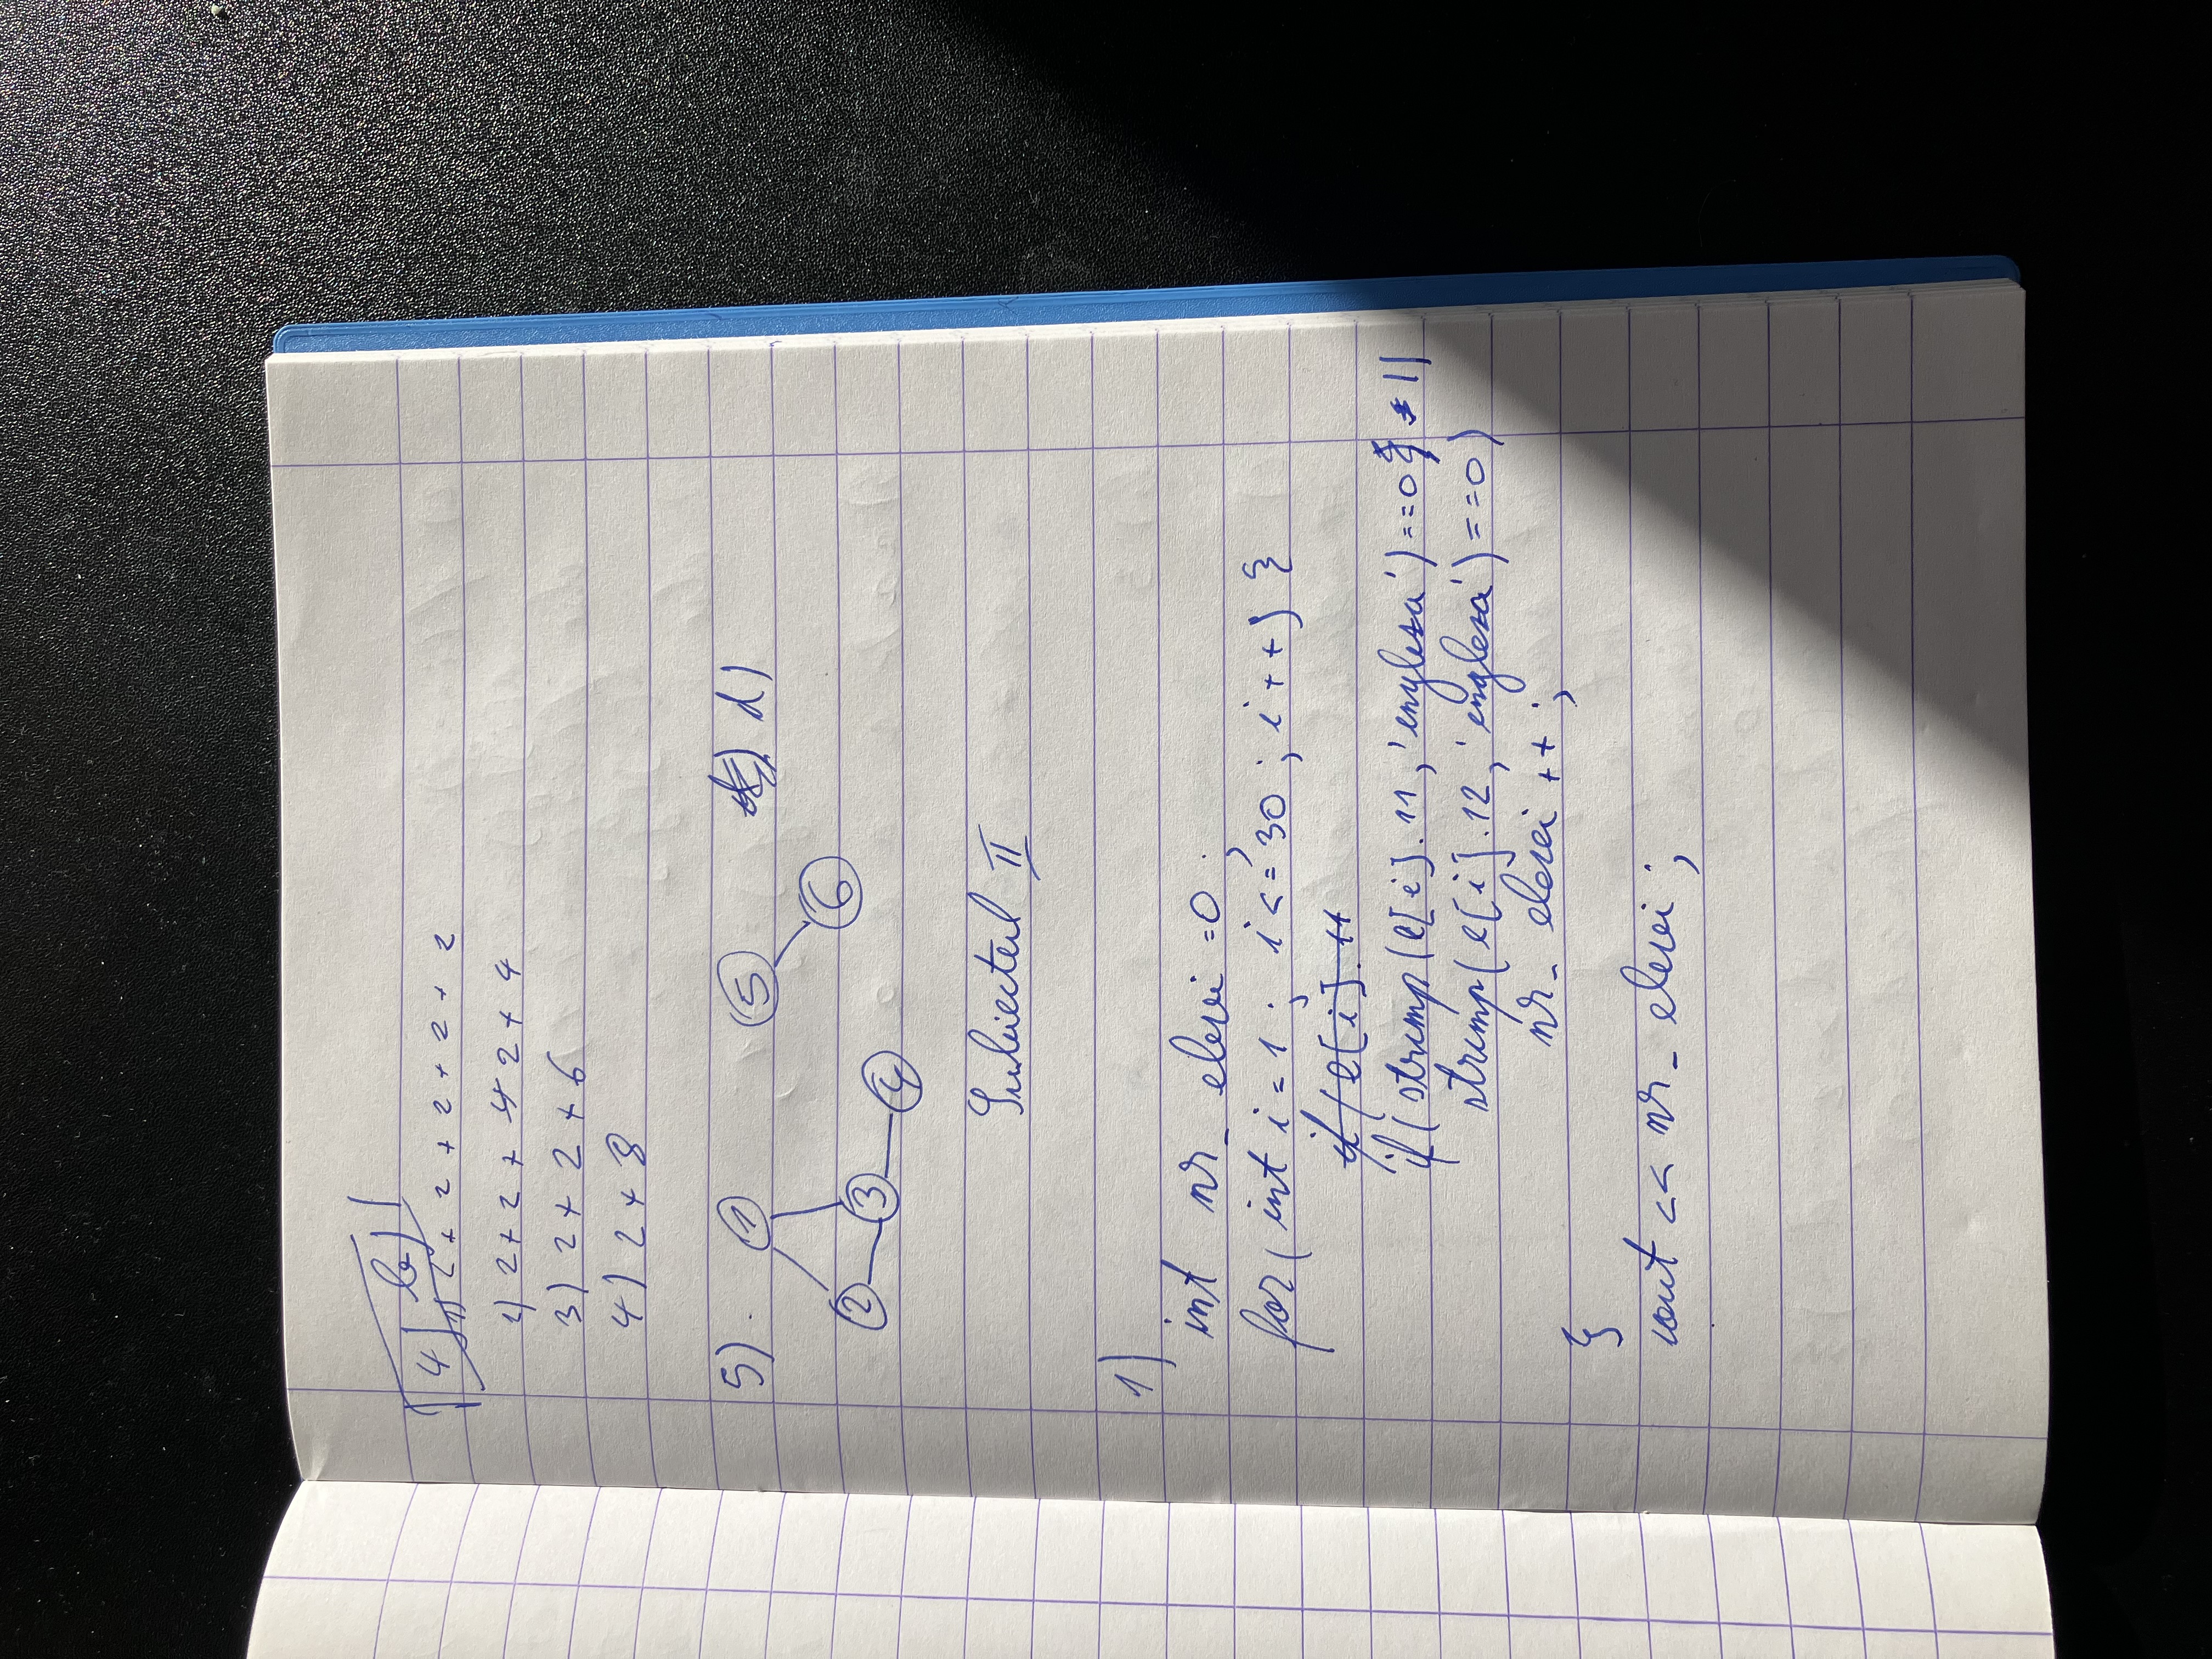 4) b)
1) 2 + 2 + 2 + 2 + 2
2) 2 + 2 + 4 2 + 4
3) 2 + 2 + 6
4) 2 + 8
5) 1 5 d)
6
2 3 4
Subiectul II
1)
int nr_elevi =0;
for( int i = 1; i <= 30; i++) {
if(e[i].11
if( strcmp(e[i].11, 'engleza')==0 ||
strcmp(e[i].12, 'engleza')==0)
nr_elevi ++;
}
cout << nr_elevi;